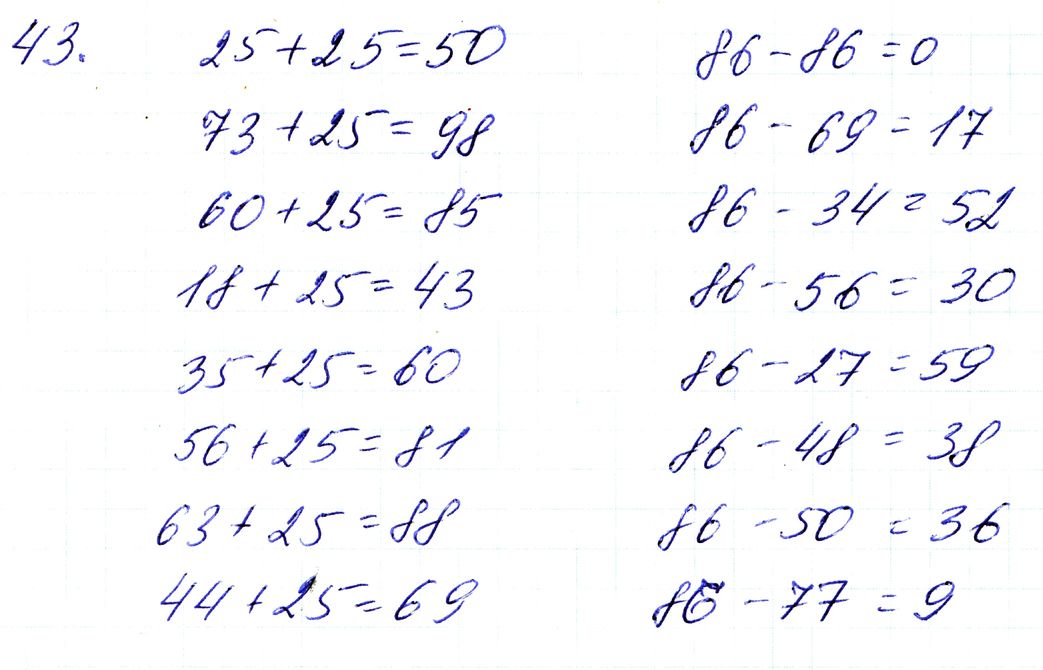 43. 25+25=50 86-86=0
73+25=98 86-69=17
60+25=85 86-34=52
18+25=43 86-56=30
35+25=60 86-27=59
56+25=81 86-48=38
63+25=88 86-50=36
44+25=69 86-77=9